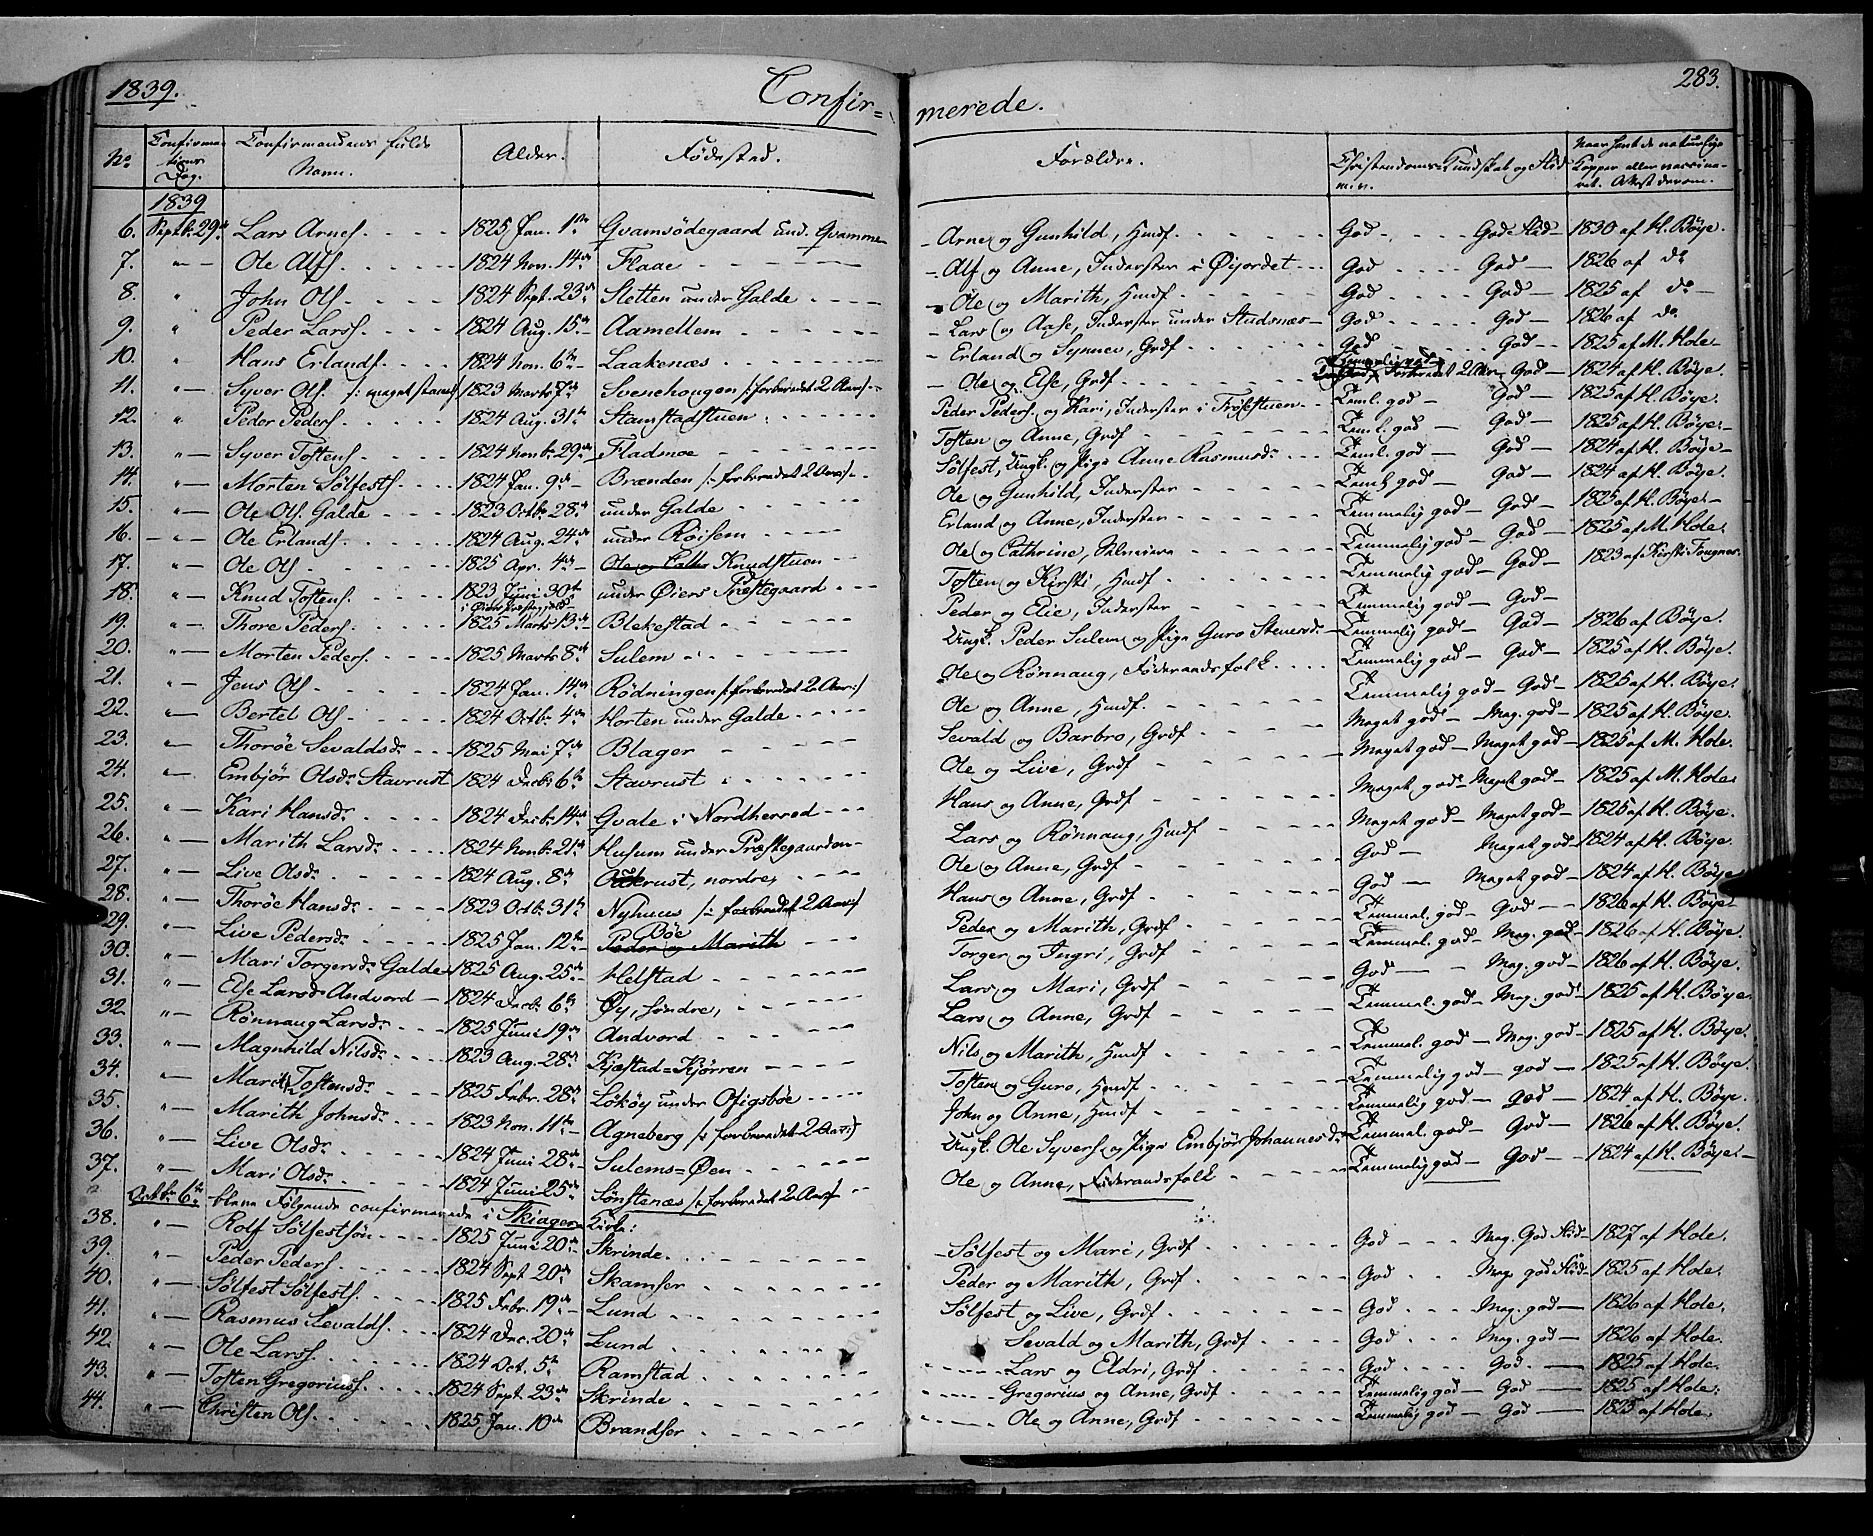 1839. Confir= merede. 283.
No Confirmations Dag. Confirmandens fulde Navn. Alder. Fødested. Forældre. Christendoms Kundskab og Flid Naar havt de naturlige Kopper eller vaccineret. Attest derom.
1839
6. Septb. 29de Lars Arnes. 1825 Jan. 1ste Qvamsødegaard und. Qvamme Arne og Gunhild, Husf. God God Flid 1830 af H. Bøye.
7. Ole Alfs. 1824 Nov. 14de Flaae Alf og Anne, Inderster i Øijordet God God 1826 af do
8. John Ols. 1824 Sept. 23de Sletten under Galde Ole og Marith, Husf. God God 1825 af do
9. Peder Larss. 1824 Aug. 15de Aamellem Lars og Aase, Inderster under Studsnæs God God 1826 af do
10. Hans Erlands. 1824 Nov. 6te Laakenæs Erland og Synnev, Grdf God God 1825 af M. Hole
11. Syver Ols. 1823 Marts 7de Svenehougen /: forberedet 2 Aar :/ Ole og Else, Grdf. Temmelig god God 1824 af H. Bøye.
12. Peder Peders. 1824 Aug. 31te Stamstadstuen Peder Peders. og Kari, Inderster i Frøsestuen Teml. god God 1825 af H. Bøye.
13. Syver Tostens. 1824 Novb. 29de Fladmoe Tosten og Anne, Grdf Teml. god God 1825 af H. Bøye
14. Morten Sølfests. 1824 Jan. 9de Brænden /: forberedet 2 Aar :/ Sølfest, Ungk. og Pige Anne Rasmusd. Teml. god God 1824 af H. Bøye
15. Ole Ols. Galde 1823 Octb. 28de under Galde Ole og Gunhild, Inderster Teml. god God 1824 af H. Bøye.
16. Ole Erlands. 1824 Aug. 24de under Røisem Erland og Anne, Inderster Temmelig god God 1825 af H. Bøye
17. Ole Ols 1825 Apr. 4de Knudstuen Ole og Cathrine, Temmelig god God 1825 af M. Hole.
18. Knud Tostens. 1823 Juni 30te i Øiers Præstegjeld under Øiers Præstegaard Tosten og Kirsti, Husf Temmelig god God 1823 af Kirsti Fougner
19. Thore Peders. 1825 Marts 13de Blekestad Peder og Elie, Inderster Temmelig god God
20. Morten Peders. 1825 Marts 8de Sulem Ungk. Peder Sulem og Pige Guro Stenersd. Temmelig god God 1826 af H. Bøye.
21. Jens Ols 1824 Jan. 14de Rødningen /: forberedet 2 Aar :/ Ole og Rønnaug, Føderaadsfolk Temmelig god God 1825 af H. Bøye.
22. Bertel Ols. 1824 Octb. 4de Horten under Galde Ole og Anne, Husf. Temmelig god God 1825 af H. Bøye.
23. Thorøe Sevaldsdr 1825 Mai 7de Blager Sevald og Barbro, Grdf Meget god Meg. god 1825 af H. Bøye.
24. Embjør Olsdr Stavrust 1824 Decb. 6te Stavrust Ole og Live, Grdf Meget god Meget god 1825 af M. Hole.
25. Kari Hansdr 1824 Decb. 14de Qvale i Nordherred Hans og Anne, Grdf Meget god Meget god 1825 af M. Hole
26. Marith Larsdr 1824 Novb. 21de Husum under Præstegaarden Lars og Rønnaug, Husf Meget god Meget god 1825 af H. Bøye.
27. Live Olsdr 1824 Aug. 8de Aukrust, nordre, Ole og Anne, Grdf God Meget god 1824 af H. Bøye.
28. Thorøe Hansdr 1823 Octb. 31te Nyhuus /: forberedet 2 Aar :/ Hans og Anne, Grdf God Meget god 1824 af H. Bøye
29. Live Pedersdr 1825 Jan. 12te Bøe Peder og Marith, Grdf Temmel. god God 1826 af H. Bøye
30. Mari Torgersdr Galde 1825 Aug. 25de Helstad Torger og Ingri, Grdf Temmel. god Meg. god 1826 af H. Bøye.
31. Else Larsdr Andvord 1824 Decb. 6te Øy, søndre, Lars og Mari, Grdf God Meg. god 1826 af H. Bøye.
32. Rønnaug Larsdr 1825 Juni 19de Andvord Lars og Anne, Grdf Temmel. god Meg. god 1825 af H. Bøye
33. Magnhild Nilsdr 1823 Aug. 28de Kjæstad=Kjørren Nils og Marith, Husf Temmel. god Meg. god 1825 af H. Bøye.
34. Marith Tostensdr 1825 Febr. 28de Løkøy under Ofigsbøe Tosten og Guro, Husf Temmelig god god 1825 af H. Bøye.
35. Marith Johnsdr 1823 Nov. 11te Agneberg /: forberedet 2 Aar :/ John og Anne, Husf Temmelig god God 1824 af H. Bøye.
36. Live Olsdr 1824 Juni 28de Sulems=Øen Ungk. Ole Syvers og Pige Embjør Johannesdr Temmel. god God 1826 af H. Bøye.
37. Mari Olsdr 1824 Juni 25de Sønstenæs /: forberedet 2 Aar :/ Ole og Anne, Føderaadsfolk Temmelig god God 1824 af H. Bøye
Octbr. 6te bleve Følgende confirmerede i Skiager Kirke:
38. Rolf Sølfestsøn 1825 Juni 20de Skrinde. Sølfest og Mari, Grdf God Meg. God Flid 1827 af Hole.
39. Peder Peders. 1824 Sept. 20de Skamser Peder og Marith, Grdf God Meg. god Flid 1825 af Hole.
40. Sølfest Sølfests. 1825 Febr. 19de Lund Sølfest og Live, Grdf. God Meg. god 1826 af Hole.
41. Rasmus Sevalds. 1824 Dec. 20de Lund Sevald og Marith, Grdf God Meg. god 1826 af Hole.
42. Ole Larss. 1824 Oct. 5te Ramstad Lars og Eldri, Grdf God God. 1825 af Hole.
43. Tosten Gregoriuss. 1824 Sept. 23de Skrinde Gregorius og Anne, Grdf Temmelig god God 1825 af Hole.
44. Christen Ols. 1825 Jan. 10de Brandser Ole og Anne, Grdf Temmelig god God 1825 af Hole